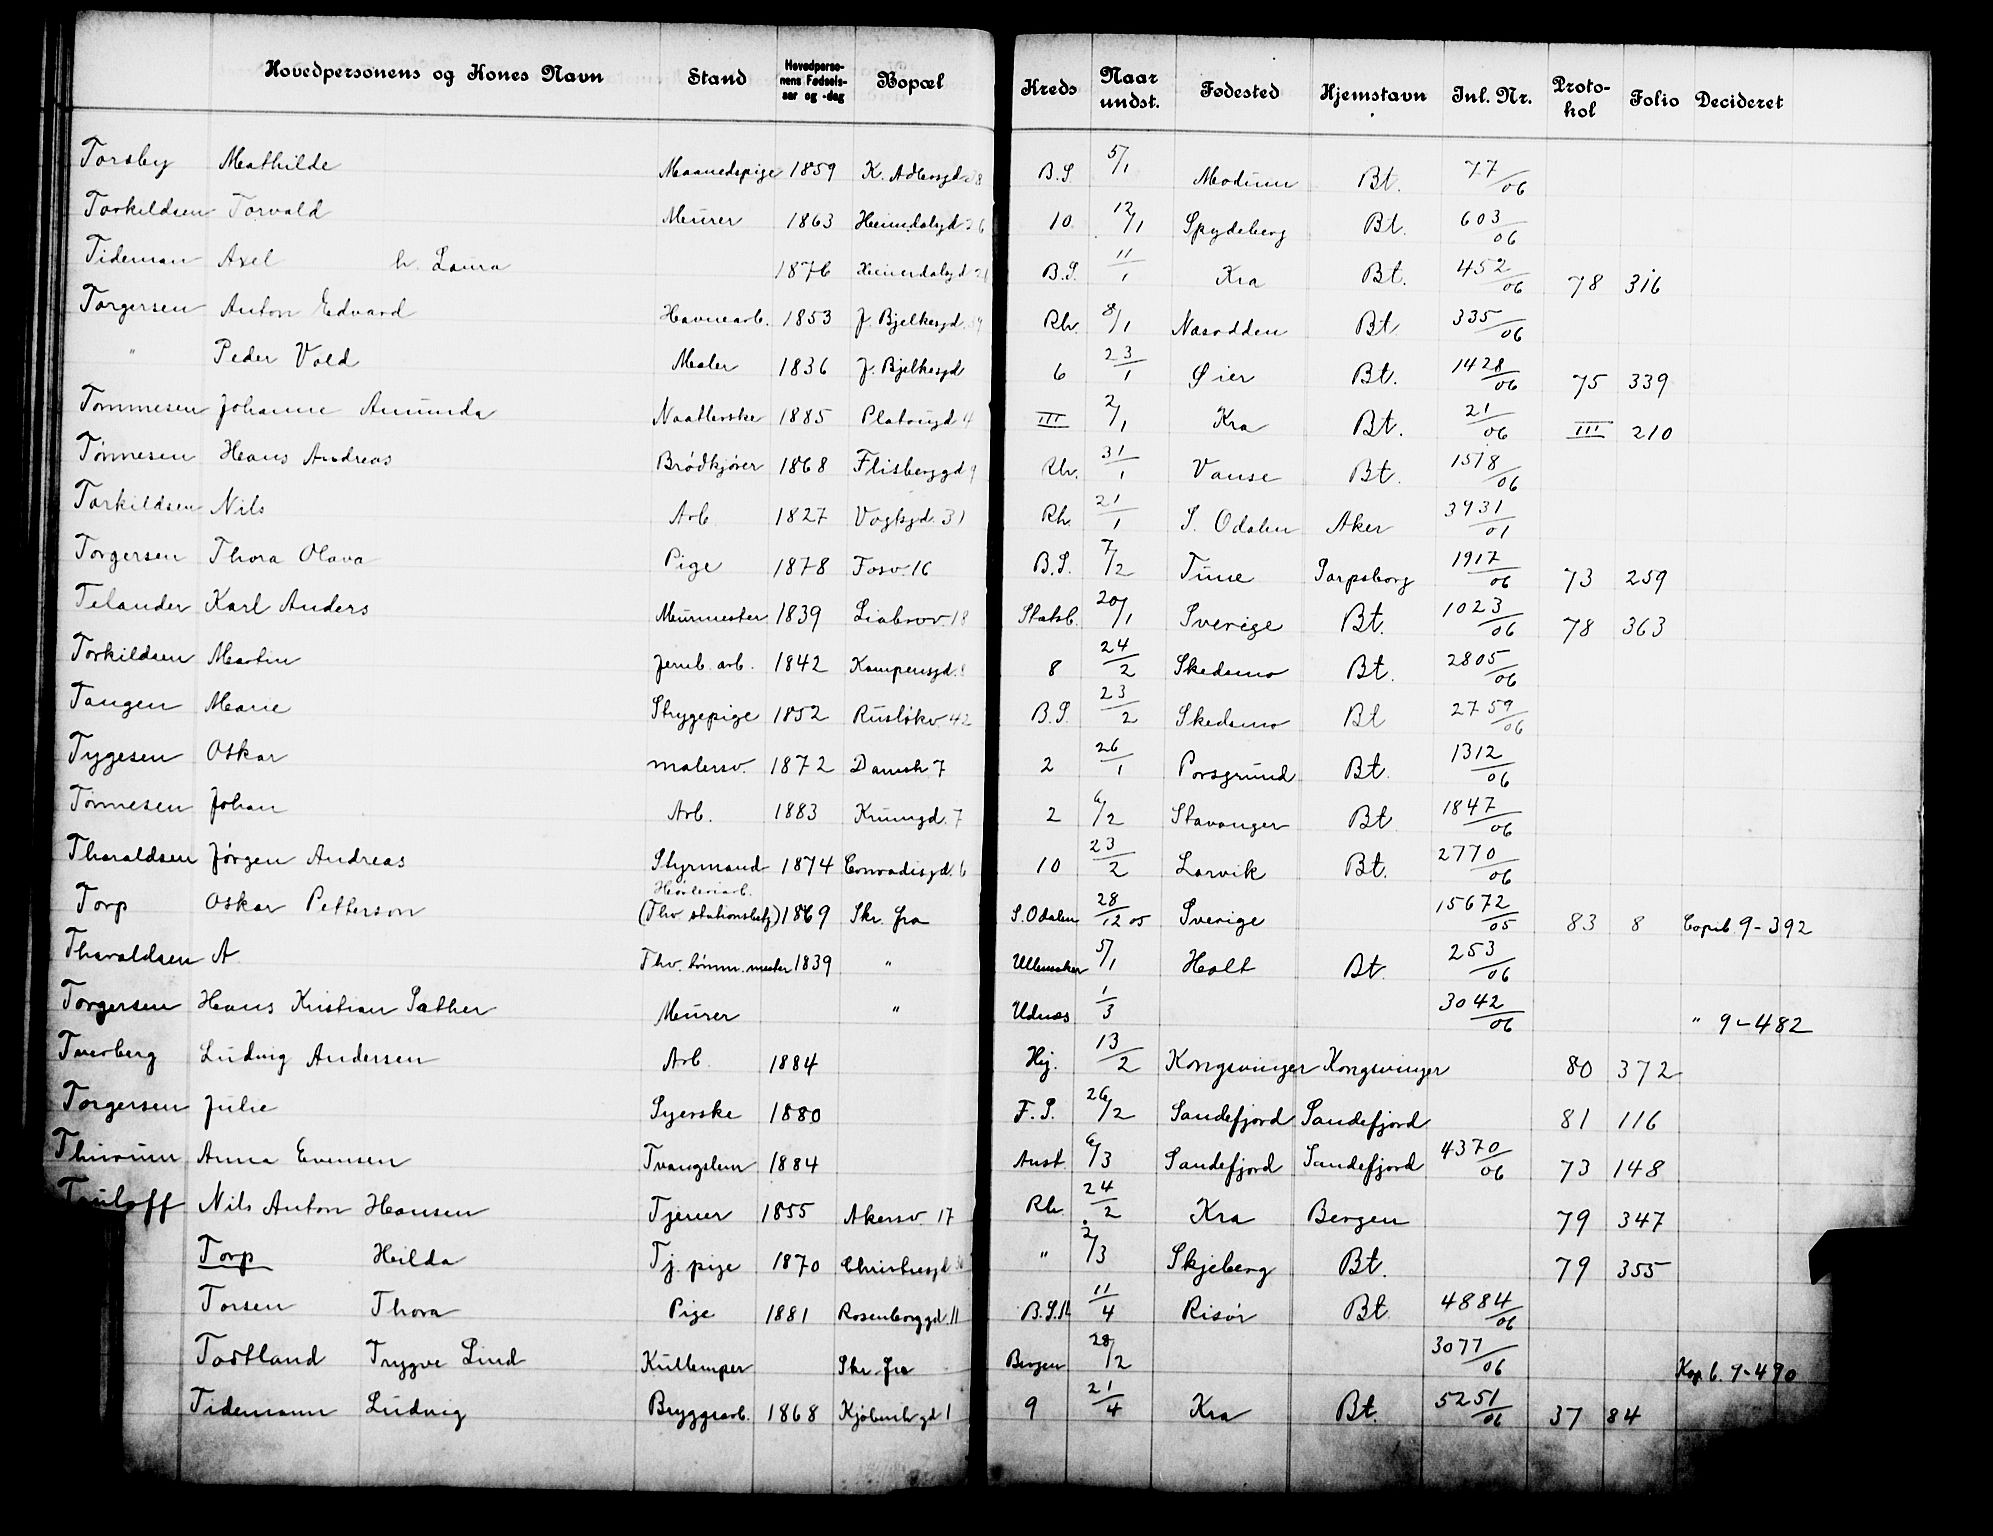 Hovedpersonens og Kones Navn Stand Hovedpersonens Fødselsaar og -dag Bopæl Kreds Naar undst. Fødested Hjemstavn Inl. Nr. Protokol Folio Decideret
Torsby Mathilde Maanedspige 1859 K. Adlersgd. B.S. 5/1 Modum Bt. 77/06
Torkildsen Torvald Murer 1863 Heimdalsgd 10 12/1 Spydeberg Bt. 603/06
Tideman Axel h. Laura 1876 Heimdalsgd B.S. 11/1 Kra Bt. 452/06 78 316
Torgersen Anton Edvard Havnearb. 1853 J. Bjelkesgd. Rh. 8/1 Næsodden Bt. 335/06
" Peder Vold Maler 1836 J. Bjelkesgd 6 23/1 Øier Bt. 1428/06 75 339
Tommesen Johanne Amunda Naatlerske 1885 Platougd 4 III 2/1 Kra Bt. 21/06 III 210
Tønnesen Hans Andreas Brødkjører 1868 Flisberggd 9 Rh. 31/1 Vanse Bt. 1578/06
Torkildsen Nils Arb. 1827 Vogtsgd. 31 Rh. 21/1 S. Odalen Aker 3931/01
Torgersen Thora Olava Pige 1878 Fosv. 16 B.S. 7/2 Time Sarpsborg 1917/06 73 259
Telander Karl Anders Murmester 1839 Liabrov. 18 Statsb. 20/1 Sverige Bt. 1023/06 78 363
Torkildsen Martin Jernb. arb. 1842 Kampensgd. 8 24/2 Skedsmo Bt. 2805/06
Tangen Marie Strygepige 1852 Rusløkv. 42 B.S. 23/2 Skedsmo Bt 2759/06
Tygesen Oskar malersv. 1872 Damst. 7 2 26/1 Porsgrund Bt. 1312/06
Tønnesen Johan Arb. 1883 Krumgd. 7 2 6/2 Stavanger Bt. 1847/06
Tharaldsen Jørgen Andreas Styrmand 1874 Conradisgd. 6 10 23/2 Larvik Bt. 2770/06
Torp Oskar Petterson (Thv stationsbetj.) 1869 Skr. fra S. Odalen 28/12 05 Sverige 15672/05 83 8 Copib 9-392
Tharaldsen A. Thv. tømm. mester 1839 " Ullensaker 5/1 Holt Bt. 253/06
Torgersen Hans Kristian Sæther Murer " Udnæs 1/3 3042/06 " 9-482
Tverberg Ludvig Andersen Arb. 1884 Hej. 13/2 Kongsvinger Kongsvinger 80 372
Torgersen Julie Syerske 1880 F.S. 26/2 Sandefjord Sandefjord 81 116
Thinrum Anna Evensen Tvangslem 1884 Anst. 6/3 Sandefjord Sandefjord 4370/06 73 148
Nils Anton Hansen Tjener 1855 Akersv 17 Rh. 24/2 Kra Bergen 79 347
Torp Hilda Tj. pige 1870 Christiesgd " 2/3 Skjeberg Bt. 79 355
Torsen Thora Pige 1881 Rosenborggd. 11 B.S.R. 11/4 Risør Bt. 4884/06
Todtland Trygve Lind Kullemper Skr. fra Bergen 28/2 3077/06 Kop b. 9-490
Tidemann Ludvig Bryggearb. 1868 Kjøbenh.gd 1 9 21/4 Kra Bt. 5251/06 37 84